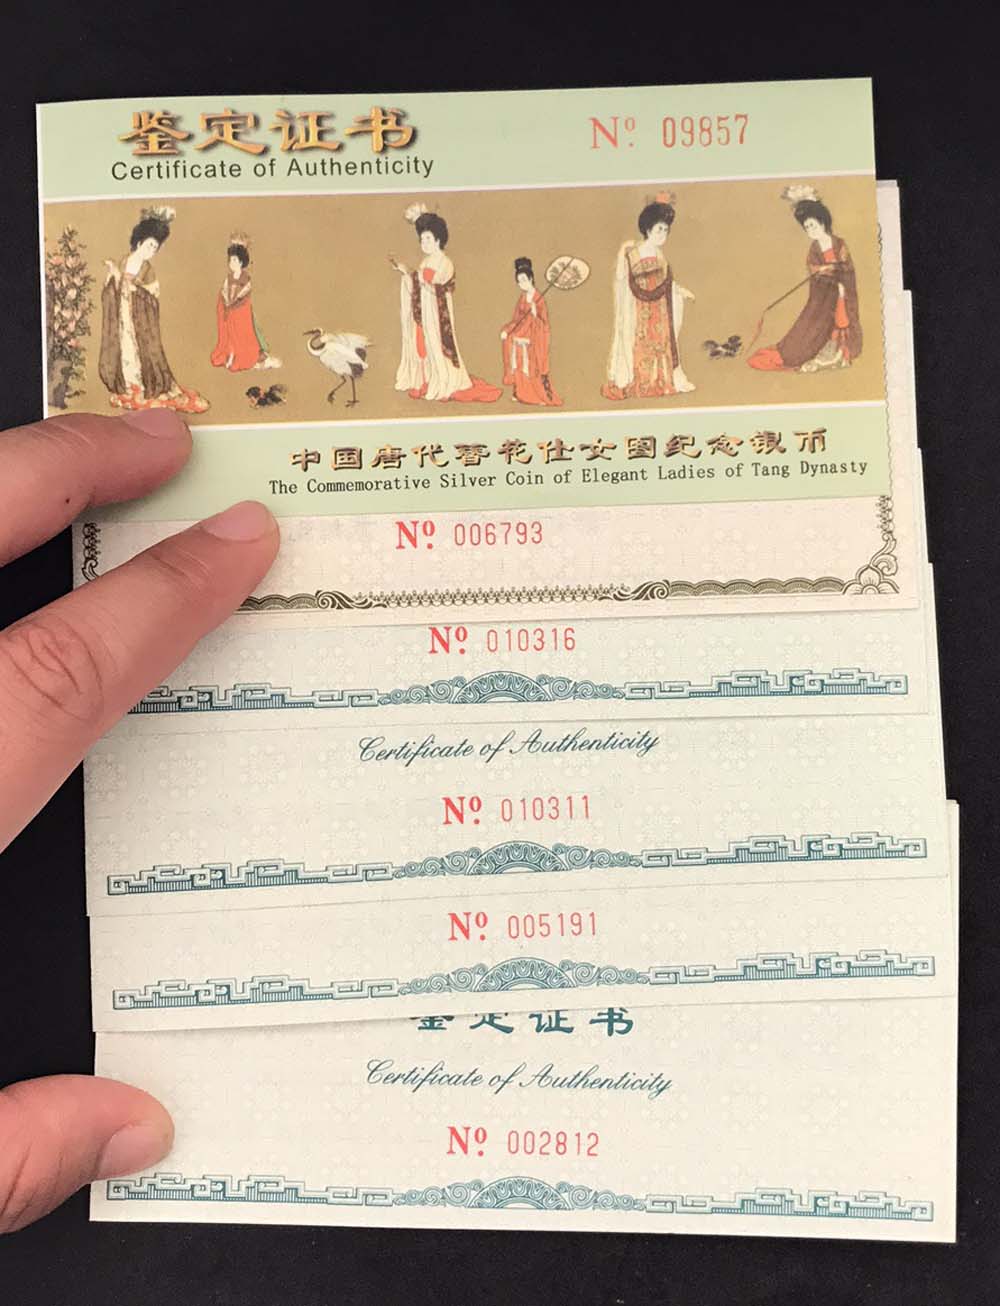 鉴定证书
Certificate of Authenticity
Nº 09857
中国唐代簪花仕女图纪念银币
The Commemorative Silver Coin of Elegant Ladies of Tang Dynasty
Nº 006793
Nº 010316
Certificate of Authenticity
Nº 010311
Nº 005191
鉴定证书
Certificate of Authenticity
Nº 002812